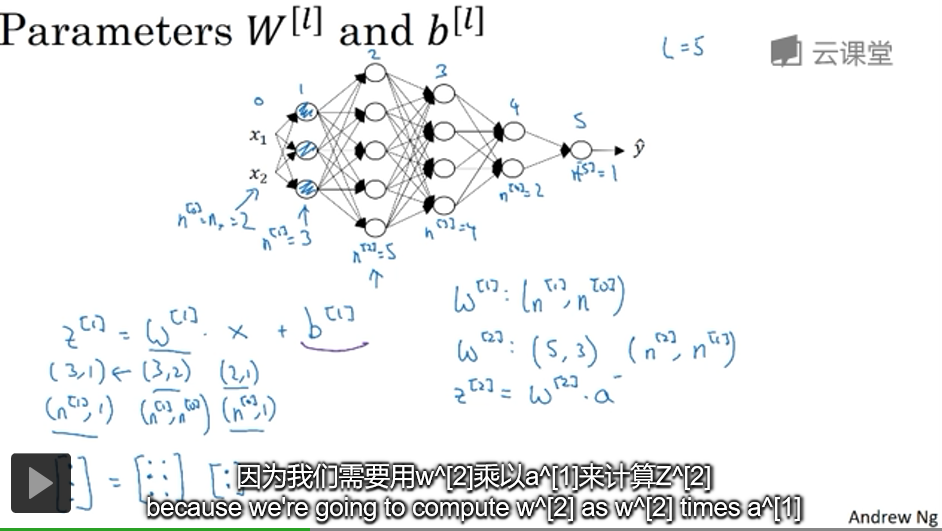 Parameters W^[l] and b^[l]
L = 5
云课堂
0 1 2 3 4 5
x₁
x₂
ŷ
n^[0] = nₓ = 2
n^[1] = 3
n^[2] = 5
n^[3] = 4
n^[4] = 2
n^[5] = 1
z^[1] = W^[1] · x + b^[1]
(3,1) ← (3,2) (2,1)
(n^[1],1) (n^[1],n^[0]) (n^[0],1)
W^[1]: (n^[1], n^[0])
W^[2]: (5,3) (n^[2], n^[1])
z^[2] = W^[2] · a
=
因为我们需要用w^[2]乘以a^[1]来计算Z^[2]
because we're going to compute w^[2] as w^[2] times a^[1]
Andrew Ng